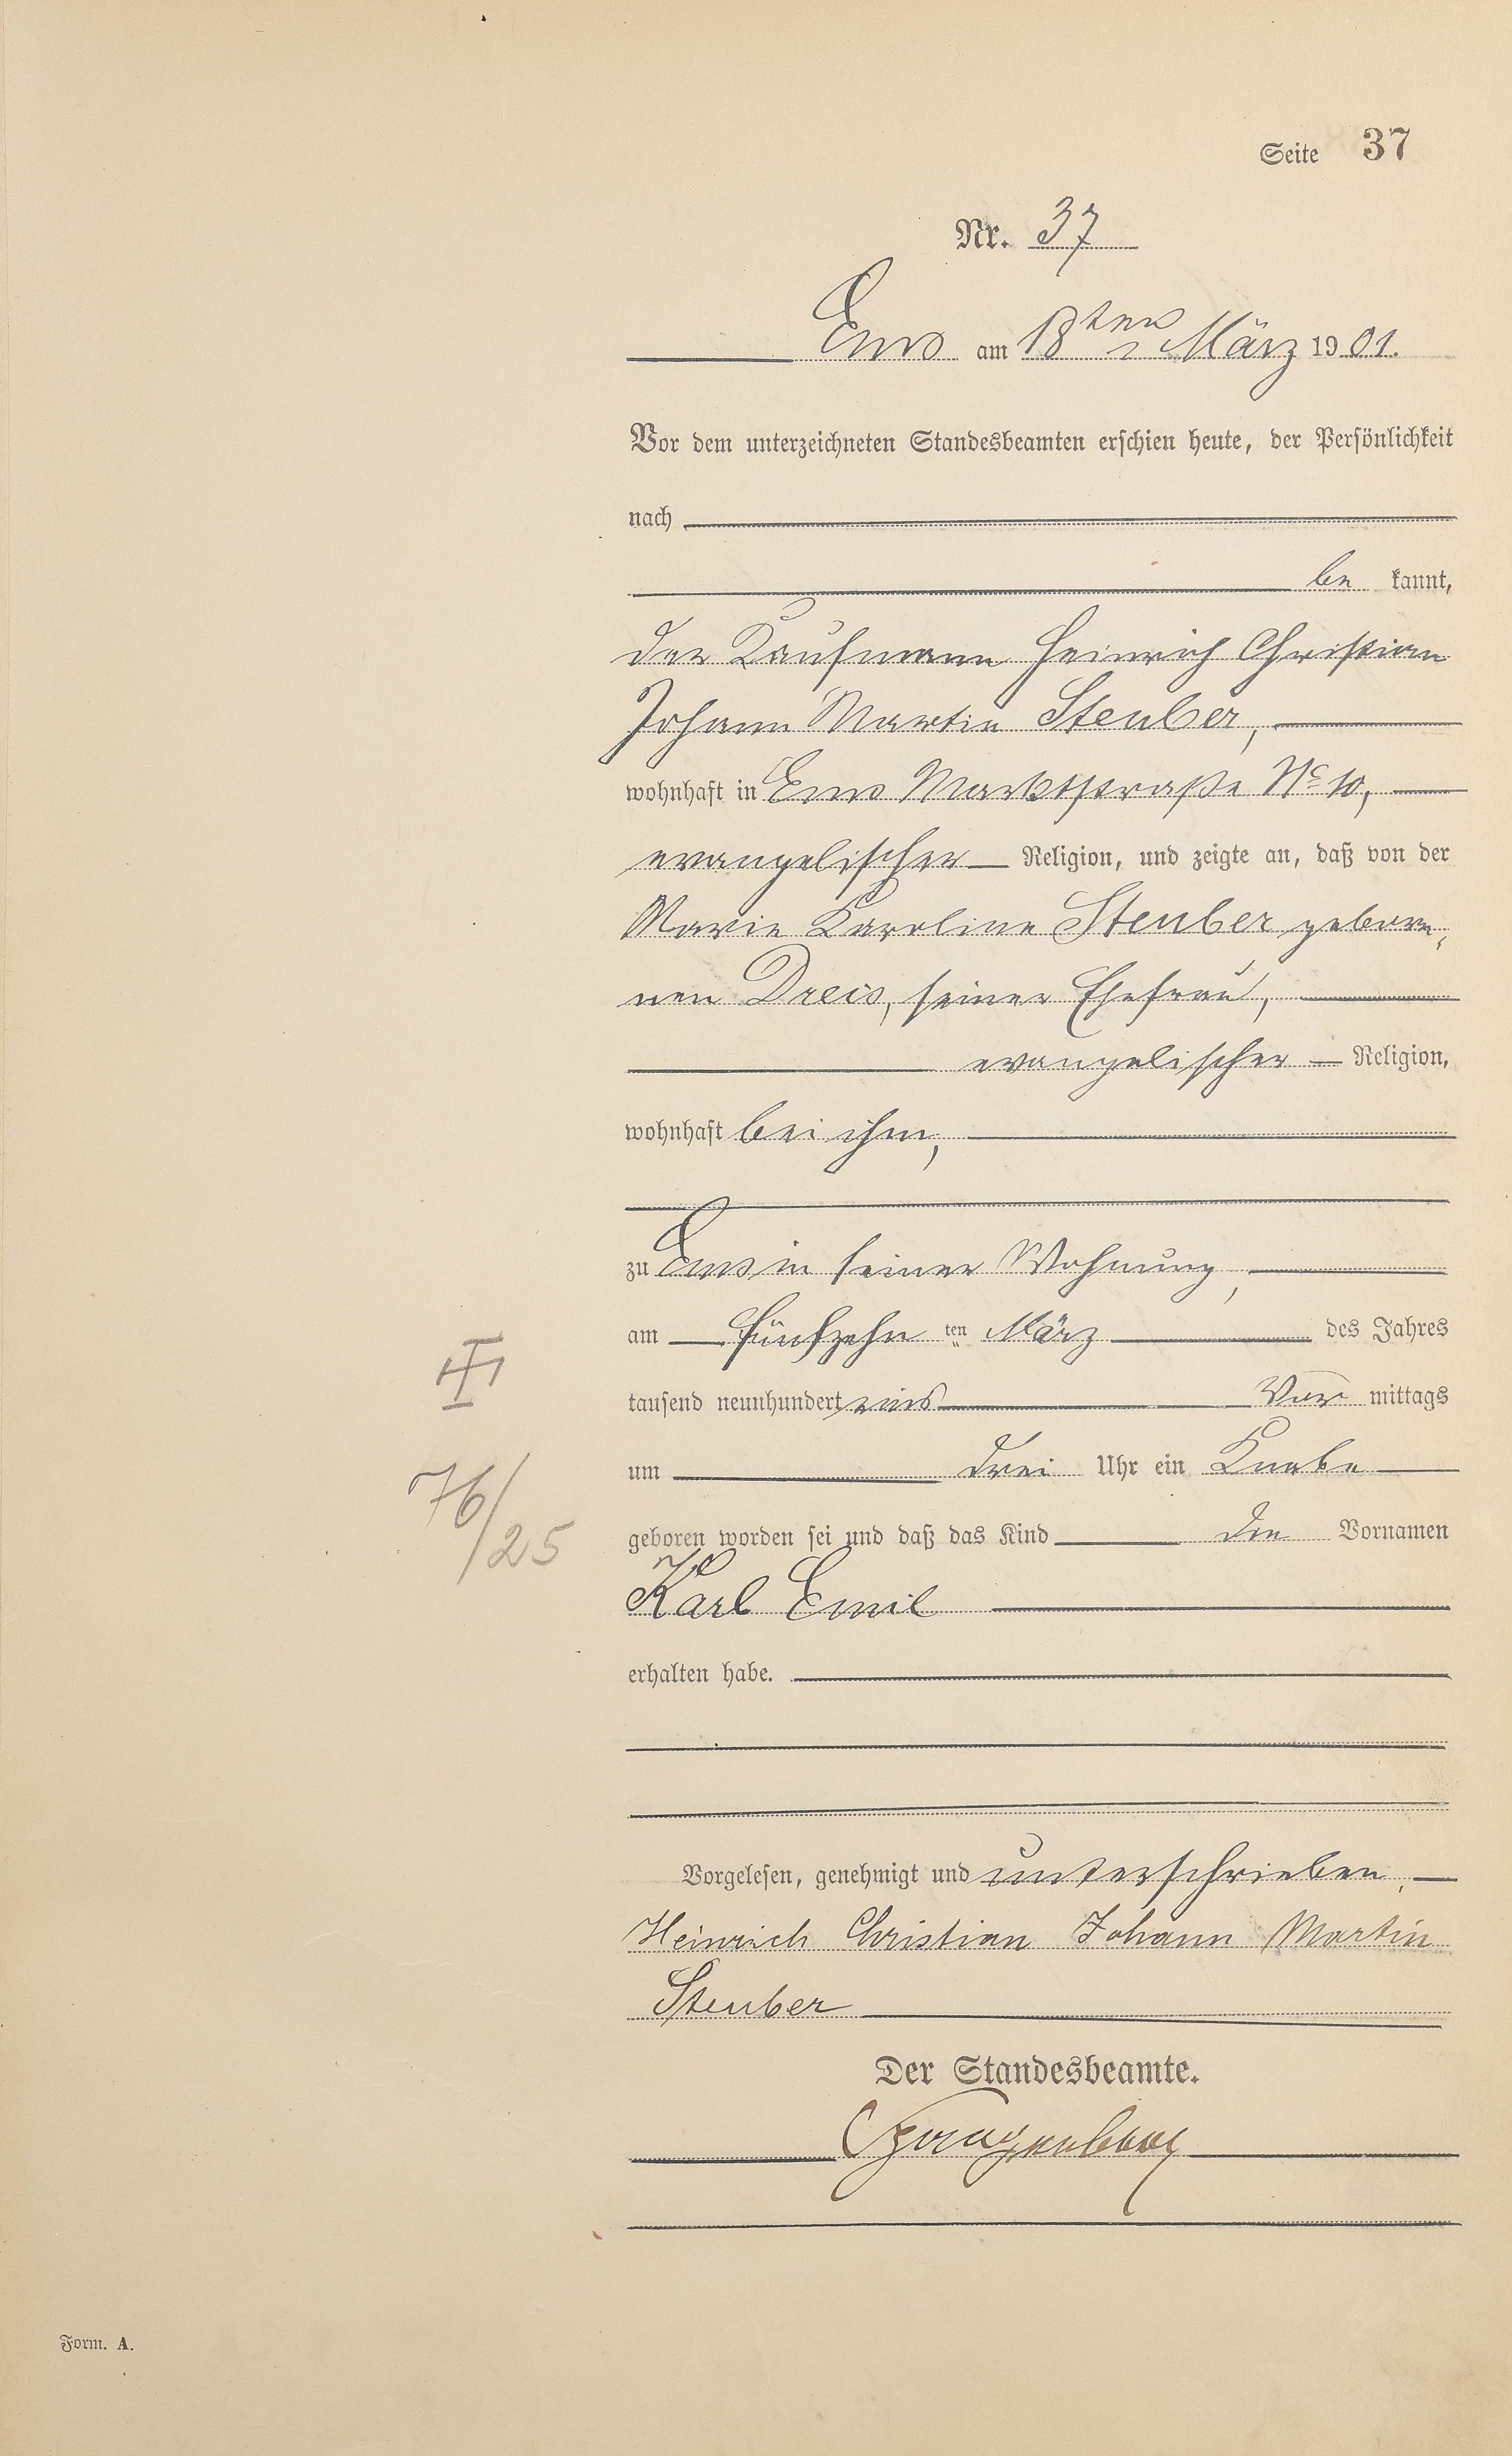 Seite 37
Nr. 37
Ems am 18ten März 1901.
Vor dem unterzeichneten Standesbeamten erschien heute, der Persönlichkeit
nach
be kannt,
der Kaufmann Heinrich Christian
Johann Martin Steuber,
wohnhaft in Ems Marktstraße No 10,
evangelischer Religion, und zeigte an, daß von der
Marie Karoline Steuber gebore-
nen Dreis, seiner Ehefrau,
evangelischer Religion,
wohnhaft bei ihm,
zu Ems in seiner Wohnung,
am fünfzehn ten März des Jahres
tausend neunhundert eins Vor mittags
um drei Uhr ein Knabe
geboren worden sei und daß das Kind den Vornamen
Karl Emil
erhalten habe.
76/25
Vorgelesen, genehmigt und unterschrieben.
Heinrich Christian Johann Martin
Steuber
Der Standesbeamte.
Form. A.